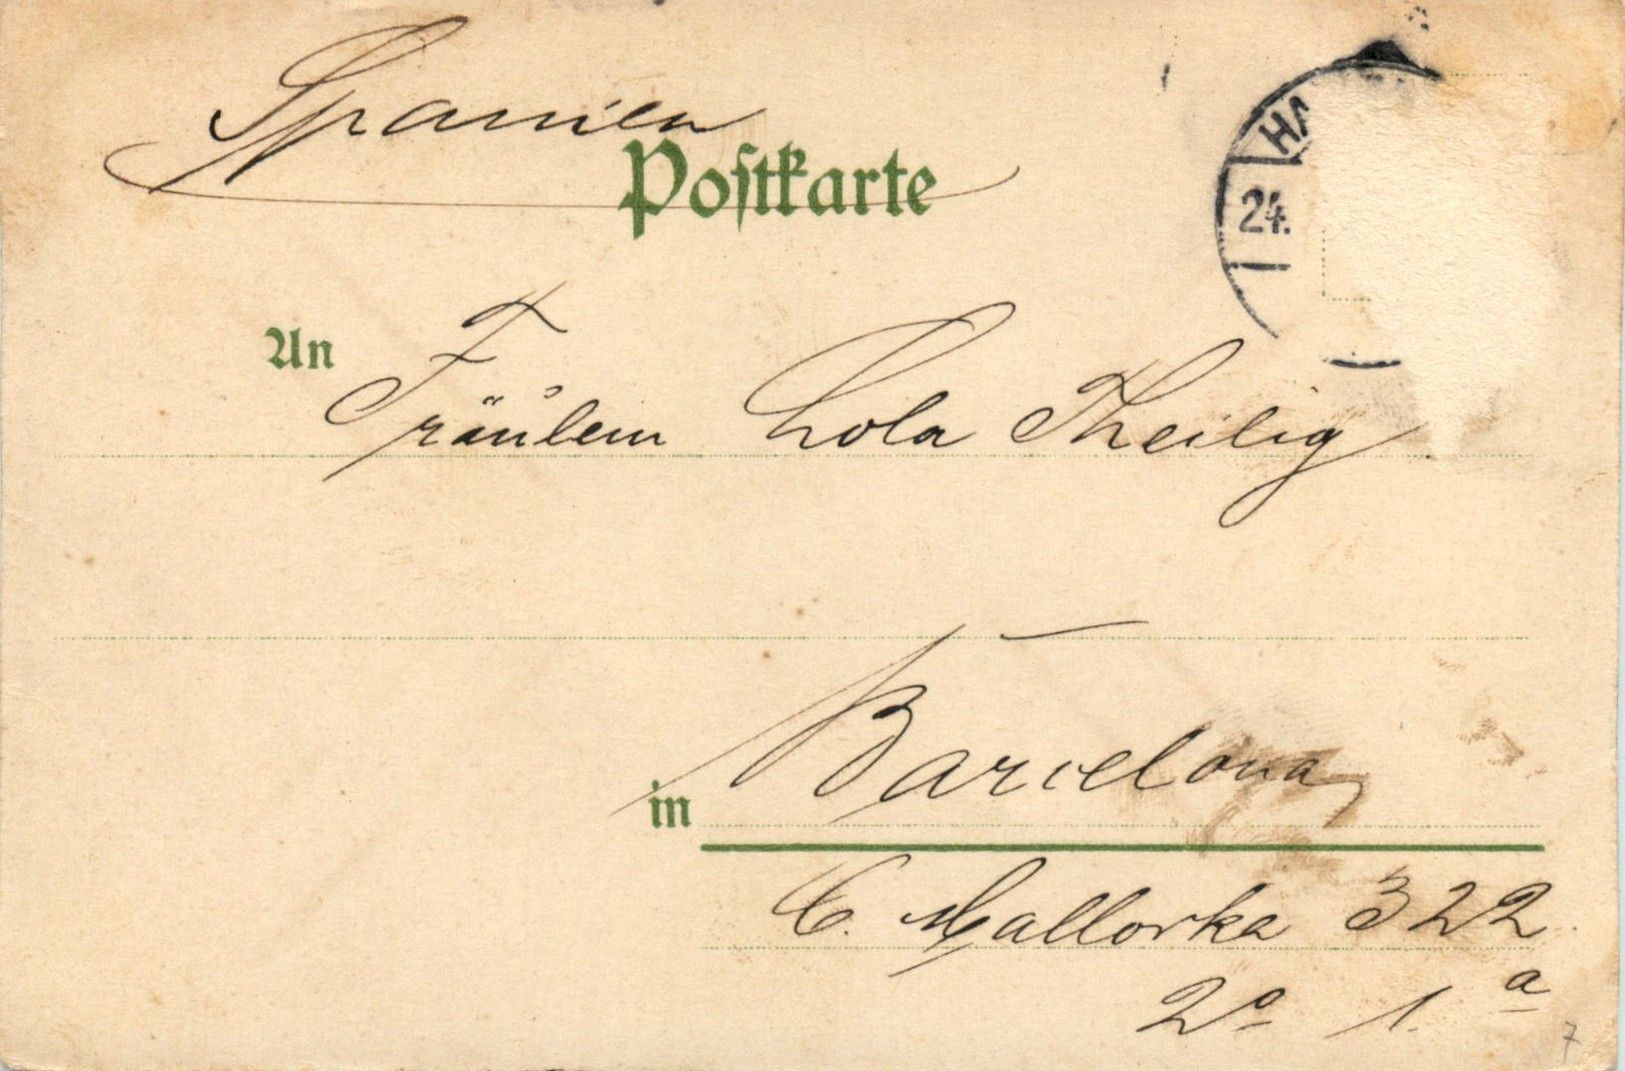 Spanien
Postkarte
HA
24.
An Fräulein Lola Theilig
in Barcelona
C. Mallorka 322
2º 1.ª
7